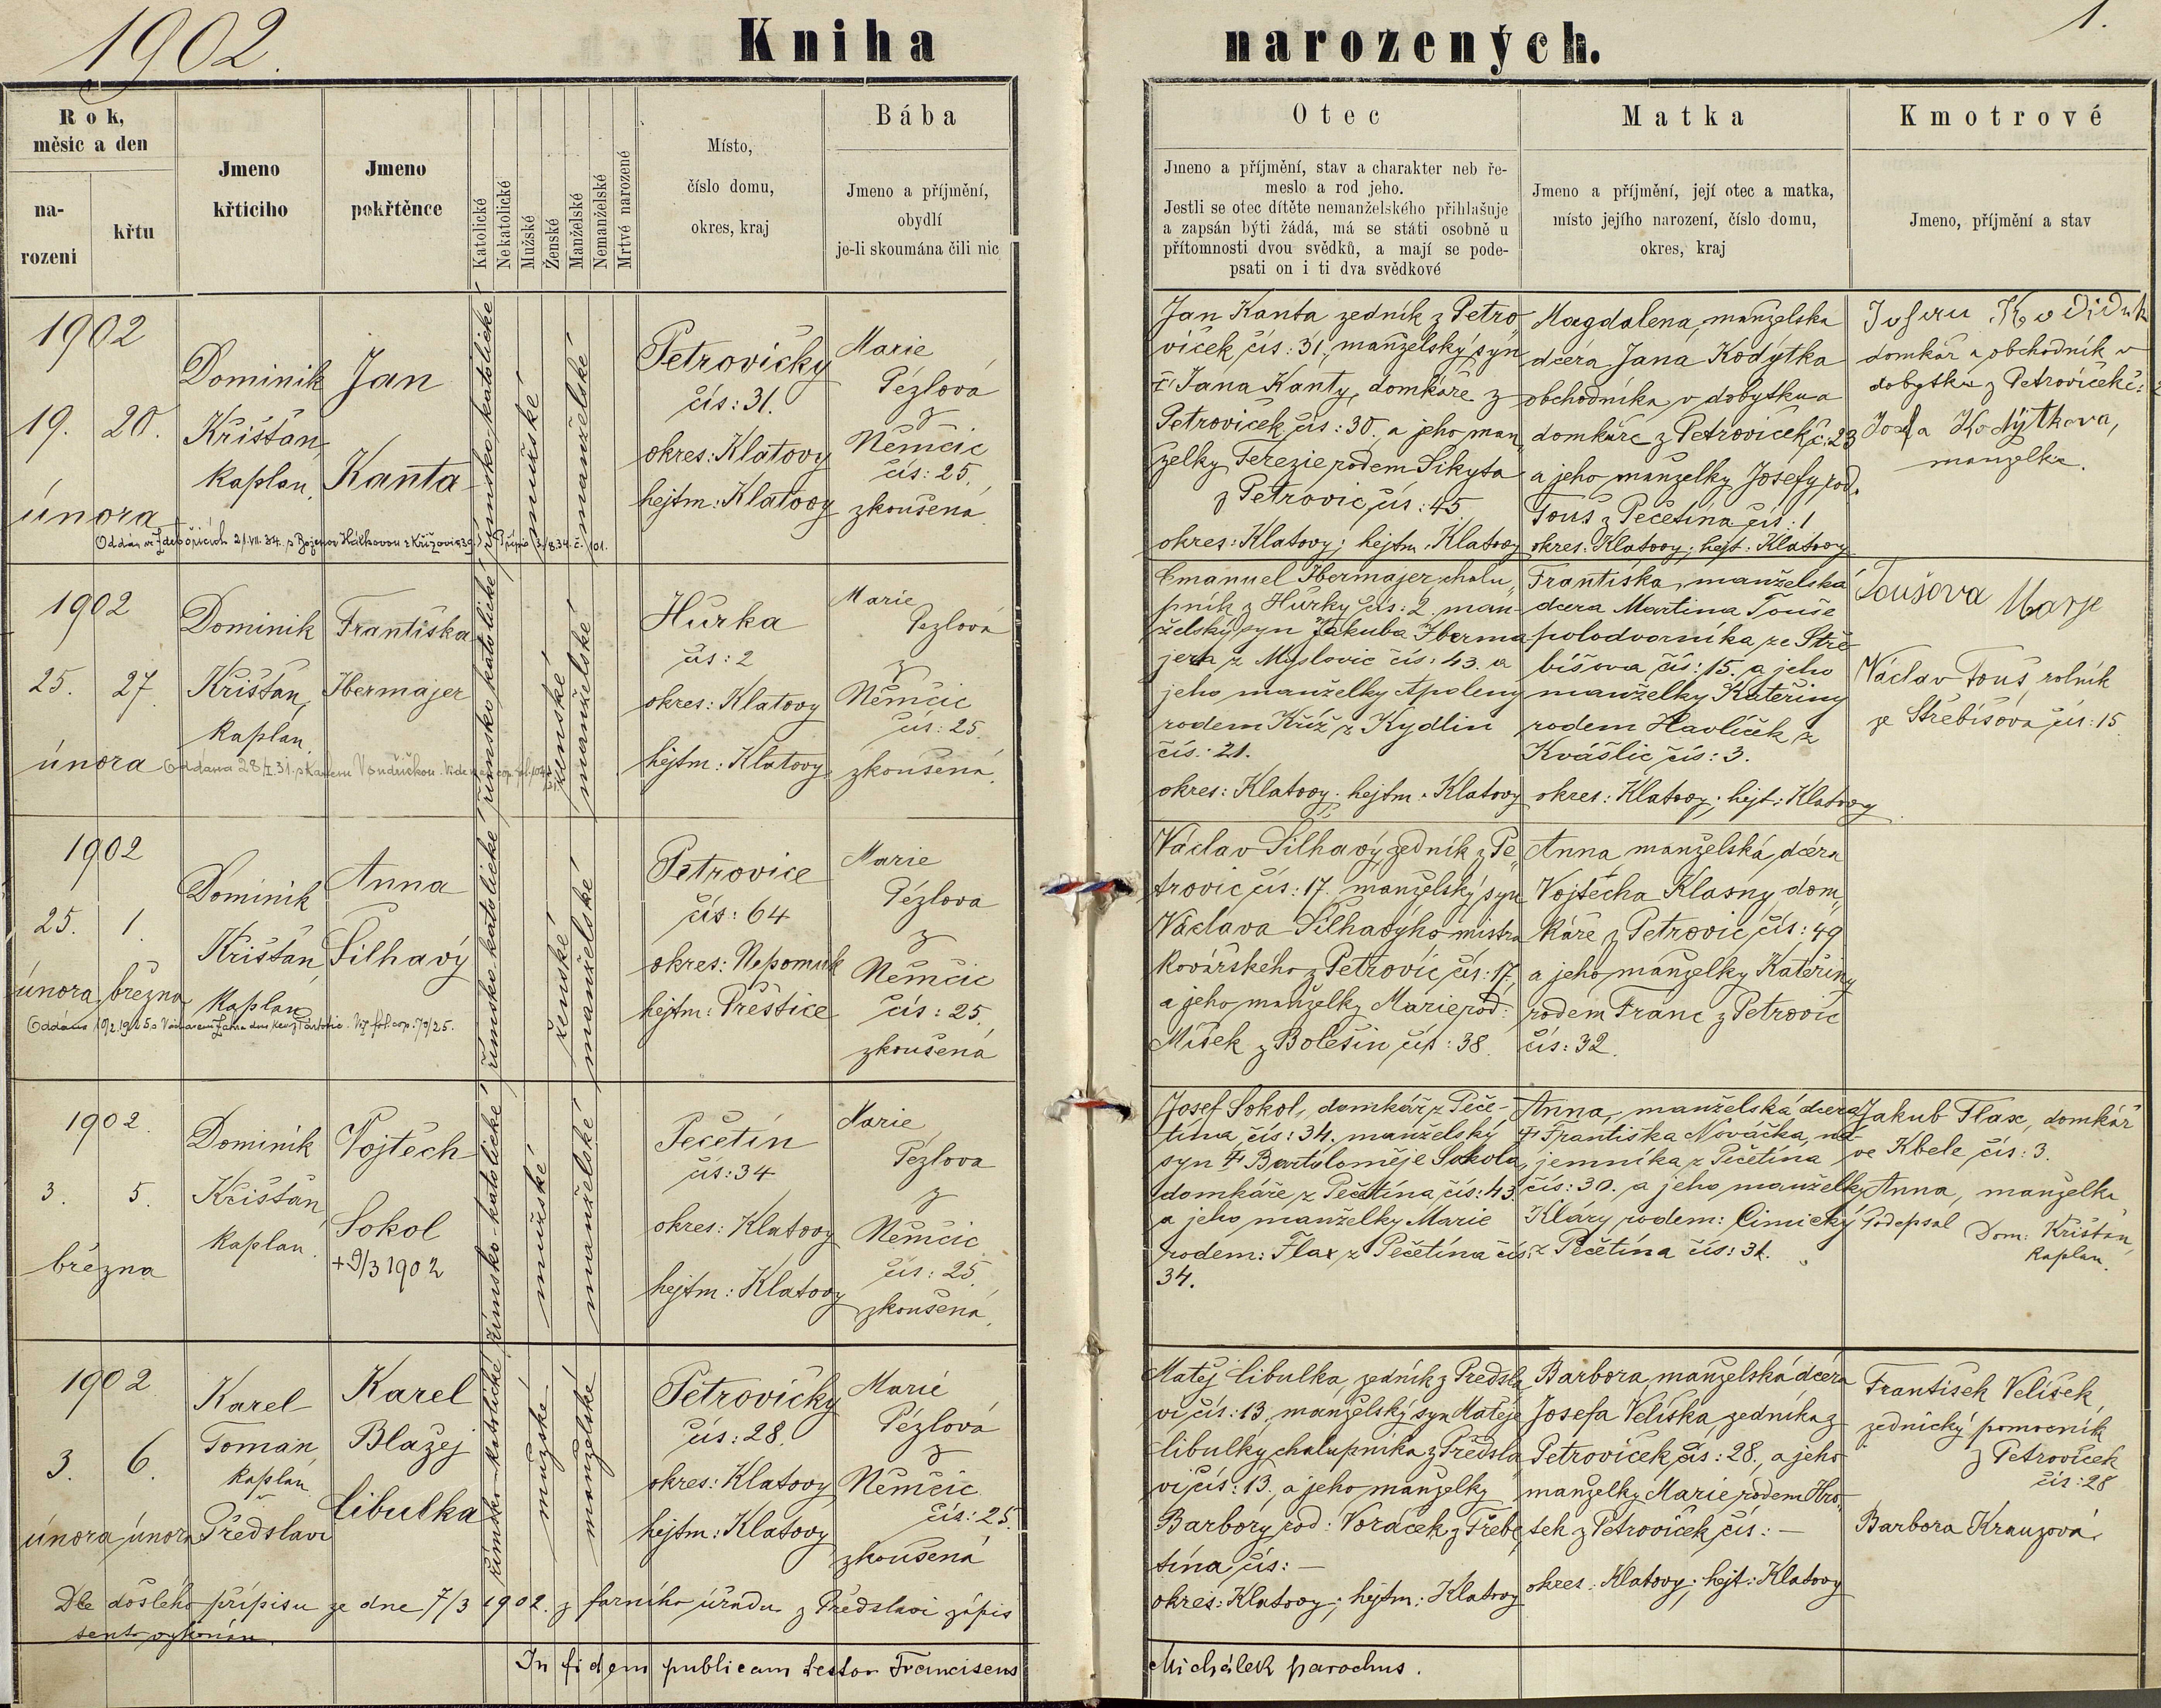 1902.
Kniha narozených.
1.
Rok,
měsíc a den
na-
rozeni
křtu
Jmeno
křticiho
Jmeno
pokřtěnce
Katolické
Nekatolické
Mužské
Ženské
Manželské
Nemanželské
Mrtvě narozené
Místo,
číslo domu,
okres, kraj
Bába
Jmeno a příjmění,
obydlí
je-li skoumána čili nic
Otec
Jmeno a příjmění, stav a charakter neb ře-
meslo a rod jeho.
Jestli se otec dítěte nemanželského přihlašuje
a zapsán býti žádá, má se státi osobně u
přítomnosti dvou svědků, a mají se pode-
psati on i ti dva svědkové
Matka
Jmeno a příjmění, její otec a matka,
místo jejího narození, číslo domu,
okres, kraj
Kmotrové
Jmeno, příjmění a stav
1902
19. 20.
února
Dominik
Krištan,
kaplan.
Jan
Kanta
římsko katolické
mužské
manželské
Petrovičky
čís: 31.
okres: Klatovy
hejtm: Klatovy
Marie
Pézlová
z
Němčic
čís: 25.
zkoušená.
Jan Kanta zedník z Petro
viček čís: 31., manželský syn
Jana Kanty, domkáře z
Petroviček čís: 30. a jeho man
želky Terezie rodem Sikyta
z Petrovic čís: 45.
okres: Klatovy; hejtm: Klatovy
Magdalena, manželská
dcera Jana Kodýtka
obchodníka v dobytku a
domkáře z Petroviček č: 23
a jeho manželky Josefy rod.
Touš z Pečetína čís: 1
okres: Klatovy; hejt: Klatovy
domkář a obchodník v
dobytku z Petroviček č:
Josefa Kodýtkova,
manželka.
1902
25. 27.
února
Dominik
Krištan,
kaplan.
Františka
Ibermajer
Oddána 28/I.31.
římsko katolické
ženské
manželské
Hůrka
čís: 2
okres: Klatovy
hejtm: Klatovy
Marie
Pezlová
z
Němčic
čís: 25.
zkoušená.
Emanuel Ibermajer chalu
pník z Hůrky čís: 2. man-
želský syn Jakuba Iberma
jera z Myslovic čís: 43. a
jeho manželky Apoleny
rodem Kříž z Kydlin
čís: 21.
okres: Klatovy. hejtm: Klatovy
Františka, manželská
dcera Martina Touše
polodvorníka ze Stře-
bišova čís: 15. a jeho
manželky Kateřiny
rodem Havlíček z
Kvášlic čís: 3.
okres: Klatovy; hejt: Klatovy
Toušova Marje
Václav Touš, rolník
ze Střebišova čís: 15.
1902
25. 1.
února března
Dominik
Krištan,
kaplan
Anna
Šilhavý
římsko katolické
ženské
manželské
Petrovice
čís: 64
okres: Nepomuk
hejtm: Přeštice
Marie
Pézlova
z
Němčic
čís: 25.
zkoušená
Václav Šilhavý, zedník z Pe
trovic čís: 17. manželský syn
Václava Šilhavýho mistra
kovářského z Petrovic čís: 17,
a jeho manželky Marie rod:
Míšek z Bolešin čís: 38.
Anna manželská dcera
Vojtěcha Klasny dom
káře z Petrovic čís: 49
a jeho manželky Kateřiny
rodem Franc z Petrovic
čís: 32.
1902.
3. 5.
března
Dominik
Krištan,
kaplan.
Vojtěch
Sokol
+9/3 1902
římsko-katolické
mužské
manželské
Pečetín
čís: 34
okres: Klatovy
hejtm: Klatovy
Marie
Pézlova
z
Němčic
čís: 25.
zkoušená.
Josef Sokol, domkář z Peče-
tína čís: 34. manželský
syn Ϯ Bartoloměje Sokola,
domkáře z Pečetína čís: 43.
a jeho manželky Marie
rodem: Flax z Pečetína čís:
34.
Anna, manželská dcera
Ϯ Františka Nováčka, ná-
jemníka z Pečetína
čís: 30. a jeho manželky
Kláry rodem: Cimický
z Pečetína čís: 31.
Jakub Flax, domkář
ve Kbele čís: 3.
Anna, manželka
Podepsal Dom: Krištan,
kaplan.
1902
3. 6.
února února
Karel
Toman
kaplan
v
Předslavi
Karel
Blažej
Cibulka
římsko-katolické
mužské
manželské
Petrovičky
čís: 28.
okres: Klatovy
hejtm: Klatovy
Marie
Pézlová
z
Němčic
čís: 25.
zkoušená
Matěj Cibulka, zedník z Předsla
vi čís: 13., manželský syn Matěje
Cibulky chalupníka z Předsla
vi čís: 13., a jeho manželky
Barbory rod: Voráček z Třebe
tína čís: —
okres: Klatovy; hejtm: Klatovy
Barbora, manželská dcera
Josefa Velíška zedníka z
Petroviček čís: 28., a jeho
manželky Marie rodem Hro
tek z Petroviček čís: —
okres: Klatovy; hejt: Klatovy
František Velíšek,
zednický pomocník
z Petroviček
čís: 28
Barbora Krauzová.
Dle došlého přípisu ze dne 7/3 1902. z farního úřadu z Předslavi zápis
tento vykonán.
In fidem publicam testor Franciscus Michálek parochus.